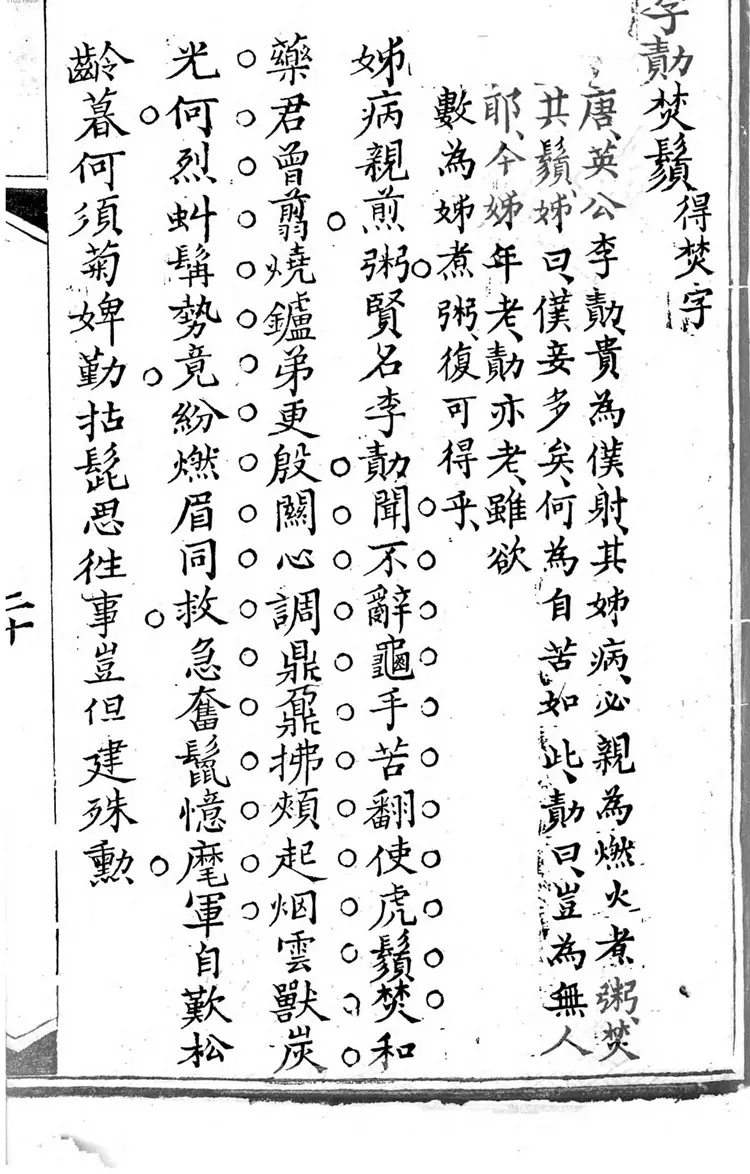 李勣焚鬚 得焚字
唐、英公李勣、貴為僕射、其姊病、必親為燃火煮粥、焚
其鬚、姊曰、僕妾多矣、何為自苦如此、勣曰、豈為無人
耶、今姊年老、勣亦老、雖欲
數為姊煮粥、復可得乎、
姊病親煎粥賢名李勣聞不辭龜手苦翻使虎鬚焚和
藥君曾翦燒鑪弟更殷關心調鼎鼐拂頰起烟雲獸炭
光何烈虯髯勢竟紛燃眉同救急奮鬣憶麾軍自歎松
齡暮何須菊婢勤拈髭思往事豈但建殊勲
二十